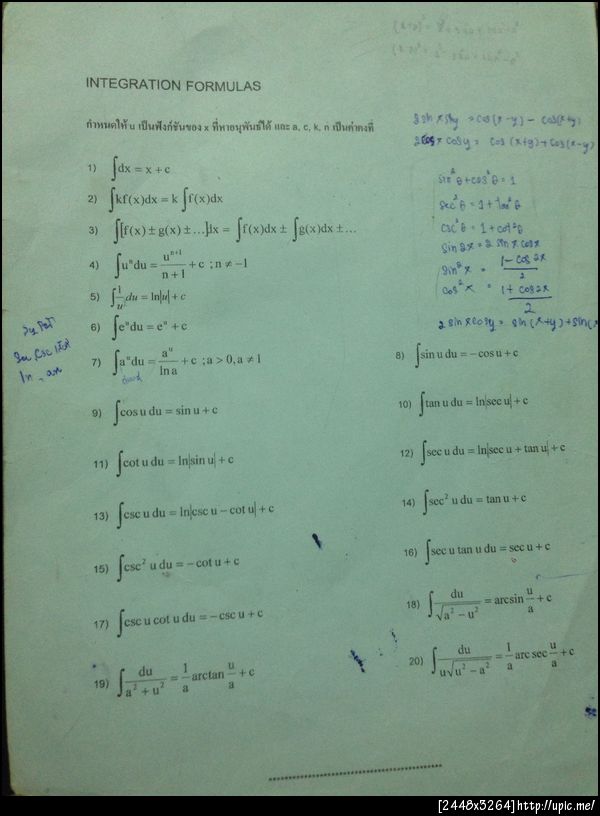 INTEGRATION FORMULAS
กำหนดให้ u เป็นฟังก์ชันของ x ที่หาอนุพันธ์ได้ และ a, c, k, n เป็นค่าคงที่
2 sin x siny = cos(x-y) - cos(x+y)
2 cos x cosy = cos (x+y)+cos(x-y)
sin²θ+cos²θ = 1
sec²θ = 1+tan²θ
csc²θ = 1+cot²θ
sin 2x = 2 sin x cosx
sin²x = (1-cos 2x)/2
cos²x = (1+cos 2x)/2
2 sin x cosy = sin(x+y)+sin(x
1) ∫dx = x + c
2) ∫kf(x)dx = k ∫f(x)dx
3) ∫[f(x) ± g(x) ± ...]dx = ∫f(x)dx ± ∫g(x)dx ± ...
4) ∫uⁿdu = uⁿ⁺¹/(n+1) + c ; n ≠ -1
5) ∫(1/u)du = ln|u| + c
6) ∫eᵘdu = eᵘ + c
7) ∫aᵘdu = aᵘ/ln a + c ; a > 0, a ≠ 1
8) ∫sin u du = -cos u + c
9) ∫cos u du = sin u + c
10) ∫tan u du = ln|sec u| + c
11) ∫cot u du = ln|sin u| + c
12) ∫sec u du = ln|sec u + tan u| + c
13) ∫csc u du = ln|csc u - cot u| + c
14) ∫sec² u du = tan u + c
15) ∫csc² u du = -cot u + c
16) ∫sec u tan u du = sec u + c
17) ∫csc u cot u du = -csc u + c
18) ∫du/√(a² - u²) = arcsin u/a + c
19) ∫du/(a² + u²) = 1/a arctan u/a + c
20) ∫du/(u√(u² - a²)) = 1/a arc sec u/a + c
[2448x3264]http://upic.me/